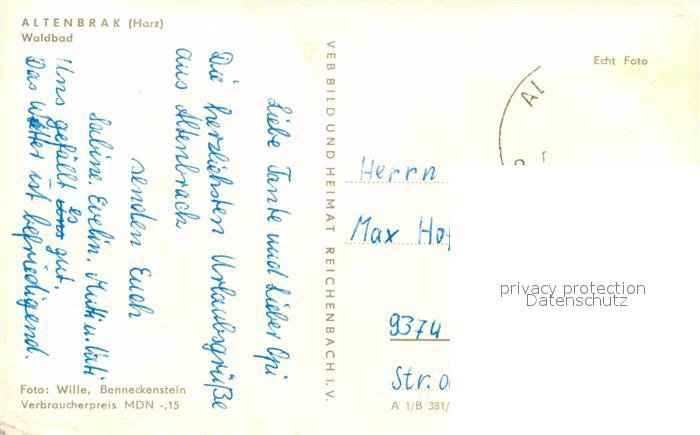 ALTENBRAK (Harz)
Waldbad
Liebe Tante und Lieber Opi
Die herzlichsten Urlaubsgrüße
aus Altenbrack
senden Euch
Sabine, Evelin, Mutti u. Vati
Uns gefällt es uns gut.
Das Wetter ist befriedigend.
Foto: Wille, Benneckenstein
Verbraucherpreis MDN -,15
VEB BILD UND HEIMAT REICHENBACH i.V.
Echt Foto
Al
Herrn
Max Hof
9374
Str. d
A 1/B 381/
privacy protection
Datenschutz